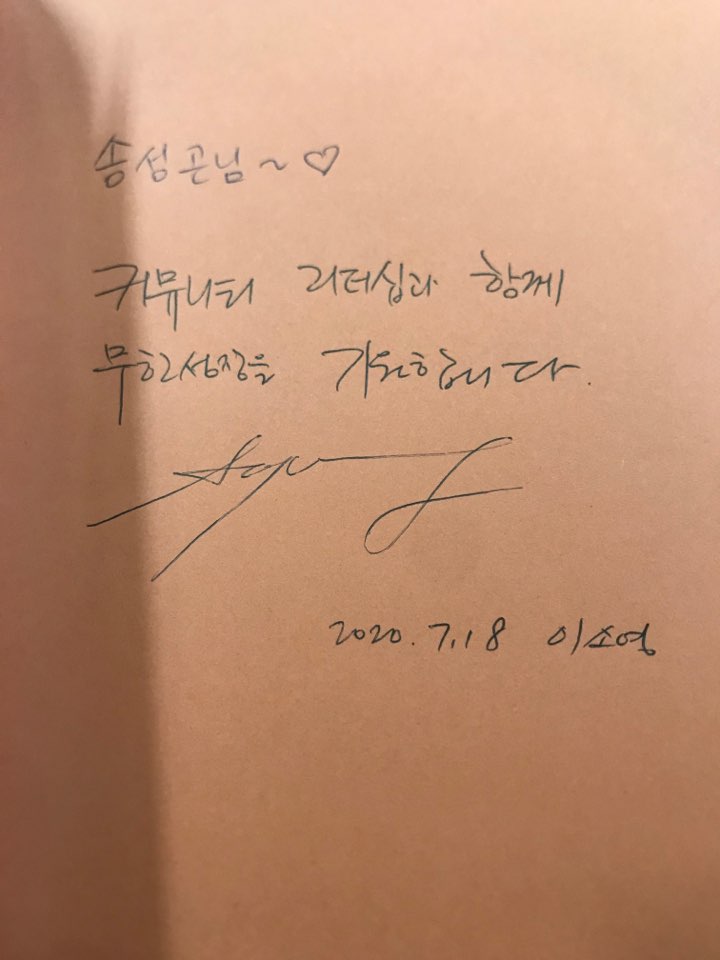 송성곤님~♡
커뮤니티 리더십과 함께
무한성장을 기원합니다.
2020.7.18 이소영